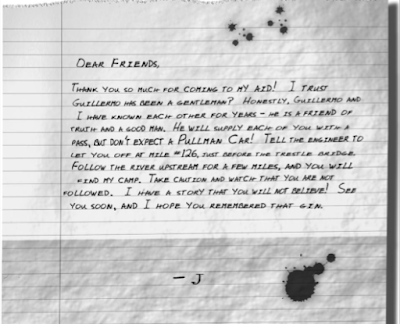 Dear Friends,
Thank you so much for coming to my aid! I trust
Guillermo has been a gentleman? Honestly, Guillermo and
I have known each other for years – he is a friend of
truth and a good man. He will supply each of you with a
pass, but don't expect a Pullman Car! Tell the engineer to
let you off at mile #126, just before the trestle bridge.
Follow the river upstream for a few miles, and you will
find my camp. Take caution and watch that you are not
followed. I have a story that you will not believe! See
you soon, and I hope you remembered that gin.
– J